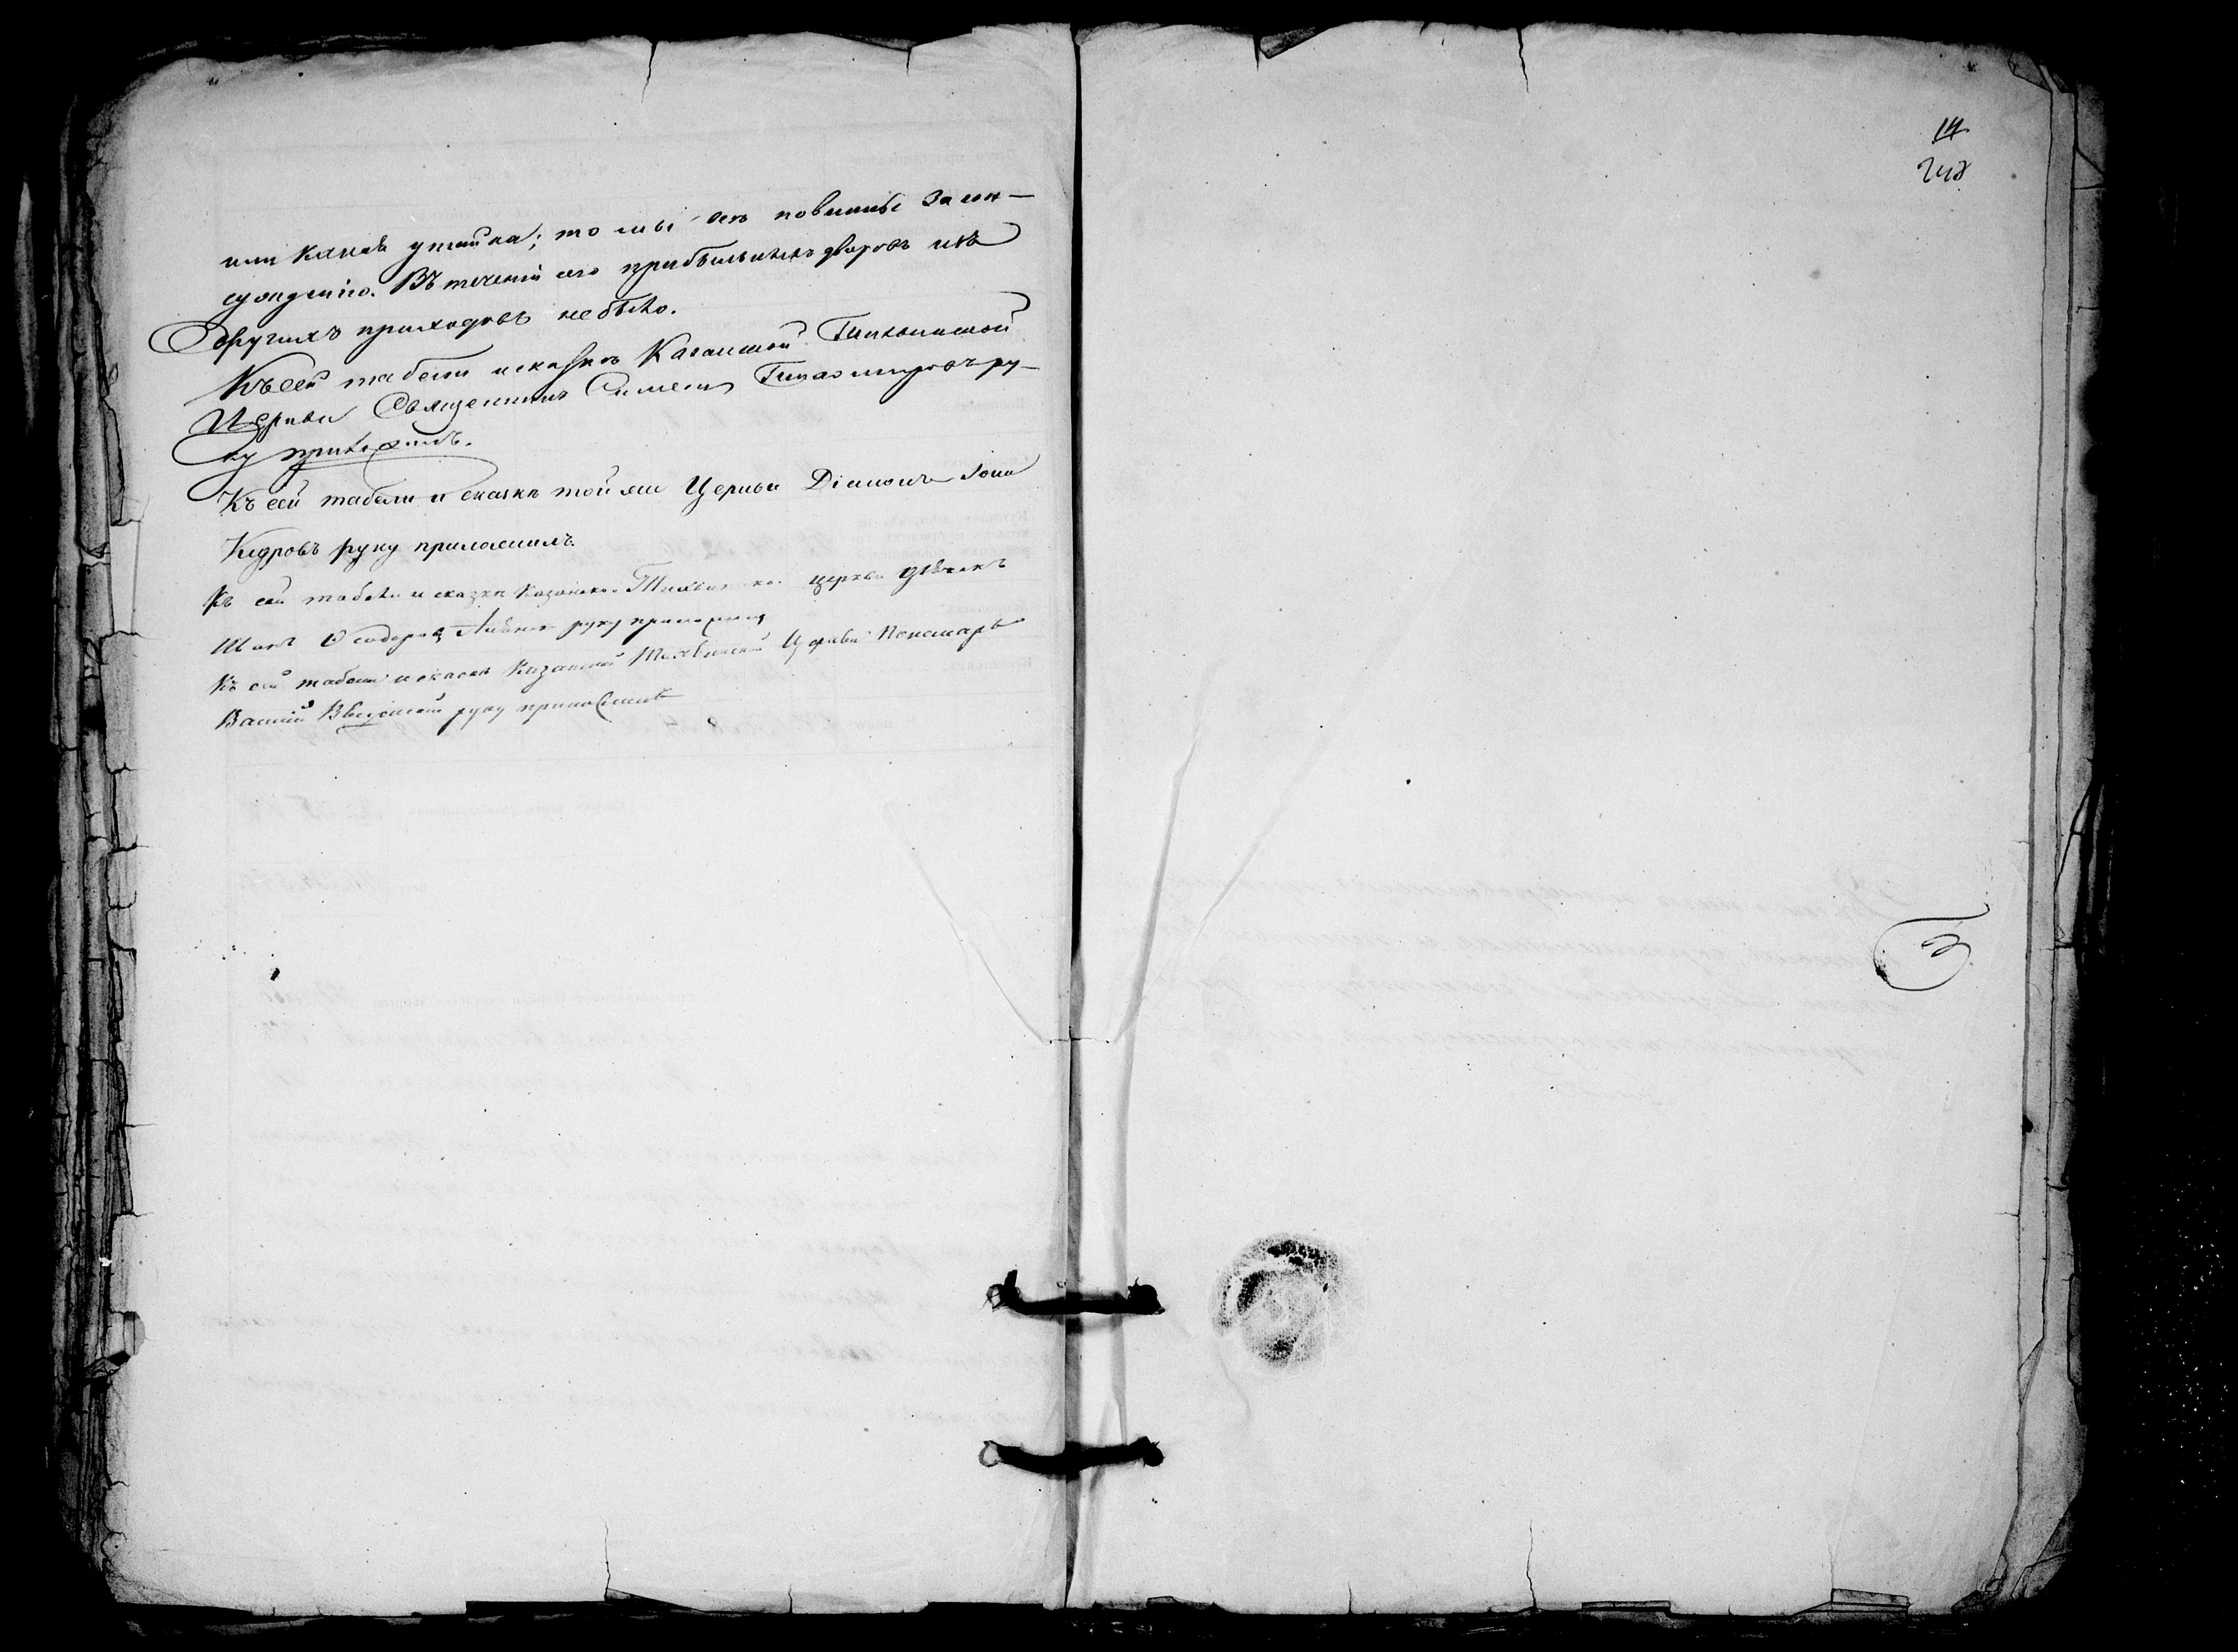 или какая утайка; то мы до повинны закон-
сужденію. Въ теченіи сего прибыльныхъ дворовъ изъ
другихъ приходовъ не было.
Къ сей табели и сказкѣ Казанской Тихвинской
Церкви Священникъ Симеонъ ру-
ку приложилъ.
Къ сей табели и сказкѣ той же Церкви Діаконъ Іона
Кедровъ руку приложилъ.
Къ сей табели и сказкѣ Казанской Тихвинской церкви дьячекъ
руку приложилъ
Къ сей табели и сказкѣ Казанской Тихвинской Церкви Пономарь
Василій Введенскій руку приложилъ
14
248